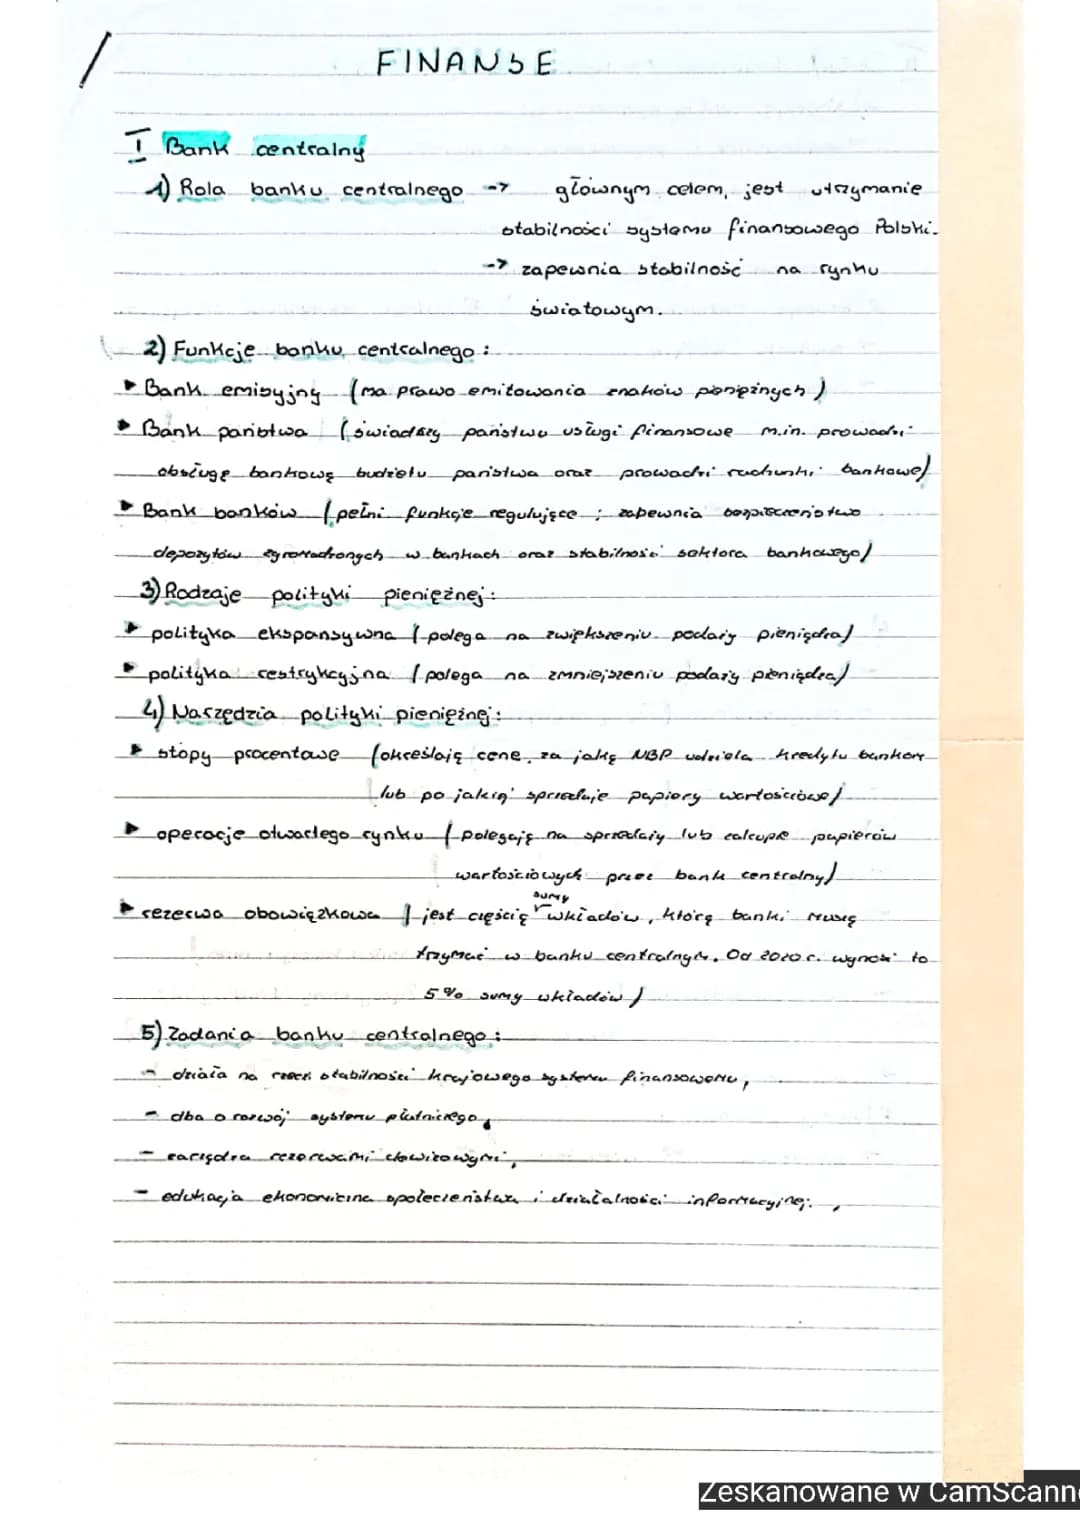 FINANSE
I Bank centralny
1) Rola banku centralnego -> głównym celem, jest utrzymanie
stabilności systemu finansowego Polski.
-> zapewnia stabilność na rynku
światowym.
2) Funkcje banku centralnego:
▸ Bank emisyjny (ma prawo emitowania znaków pieniężnych)
▸ Bank państwa (świadczy państwu usługi finansowe m.in. prowadzi
obsługę bankową budżetu państwa oraz prowadzi rachunki bankowe)
▸ Bank banków (pełni funkcje regulujące; zapewnia bezpieczeństwo
depozytów zgromadzonych w bankach oraz stabilność sektora bankowego)
3) Rodzaje polityki pieniężnej:
▸ polityka ekspansywna (polega na zwiększeniu podaży pieniądza)
▸ polityka restrykcyjna (polega na zmniejszeniu podaży pieniądza)
4) Narzędzia polityki pieniężnej:
▸ stopy procentowe (określają cenę, za jaką NBP udziela kredytu bankom
lub po jakiej sprzedaje papiery wartościowe)
▸ operacje otwartego rynku (polegają na sprzedaży lub zakupie papierów
wartościowych przez bank centralny)
▸ rezerwa obowiązkowa (jest częścią sumy wkładów, którą banki muszą
trzymać w banku centralnym. Od 2020 r. wynosi to
5% sumy wkładów)
5) Zadania banku centralnego:
- działa na rzecz stabilności krajowego systemu finansowemu,
- dba o rozwój systemu płatniczego,
- zarządza rezerwami dewizowymi,
- edukacja ekonomiczna społeczeństwa i działalności informacyjnej,
Zeskanowane w CamScann